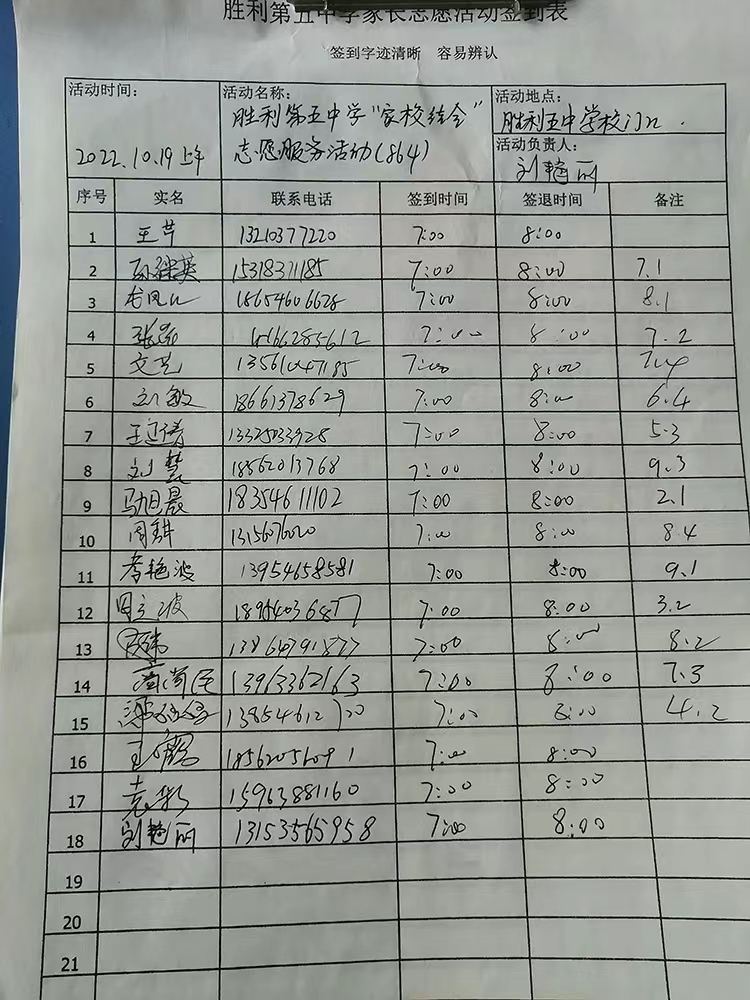 胜利第五中学家长志愿活动签到表
签到字迹清晰 容易辨认
活动时间: 2022.10.19上午
活动名称: 胜利第五中学"家校结合"志愿服务活动(864)
活动地点: 胜利五中学校门口.
活动负责人: 刘艳丽
序号 实名 联系电话 签到时间 签退时间 备注
1 王芹 13210377220 7:00 8:00
2 15318371185 7:00 8:00 7.1
3 18654606628 7:00 8:00 8.1
4 7:00 8:00 7.2
5 文艺 13561047185 7:00 8:00 7.4
6 刘敏 18661378629 7:00 8:00 6.4
7 13325033928 7:00 8:00 5.3
8 刘慧 18562013768 7:00 8:00 9.3
9 18354611102 7:00 8:00 2.1
10 7:00 8:00 8.4
11 李艳波 13954658581 7:00 8:00 9.1
12 周立波 18954036877 7:00 8:00 3.2
13 7:00 8:00 8.2
14 13963362163 7:00 8:00 7.3
15 13854612720 7:00 8:00 4.2
16 王鹤 18562056091 7:00 8:00
17 袁彩 15963881160 7:00 8:00
18 刘艳丽 13153565958 7:00 8:00
19
20
21